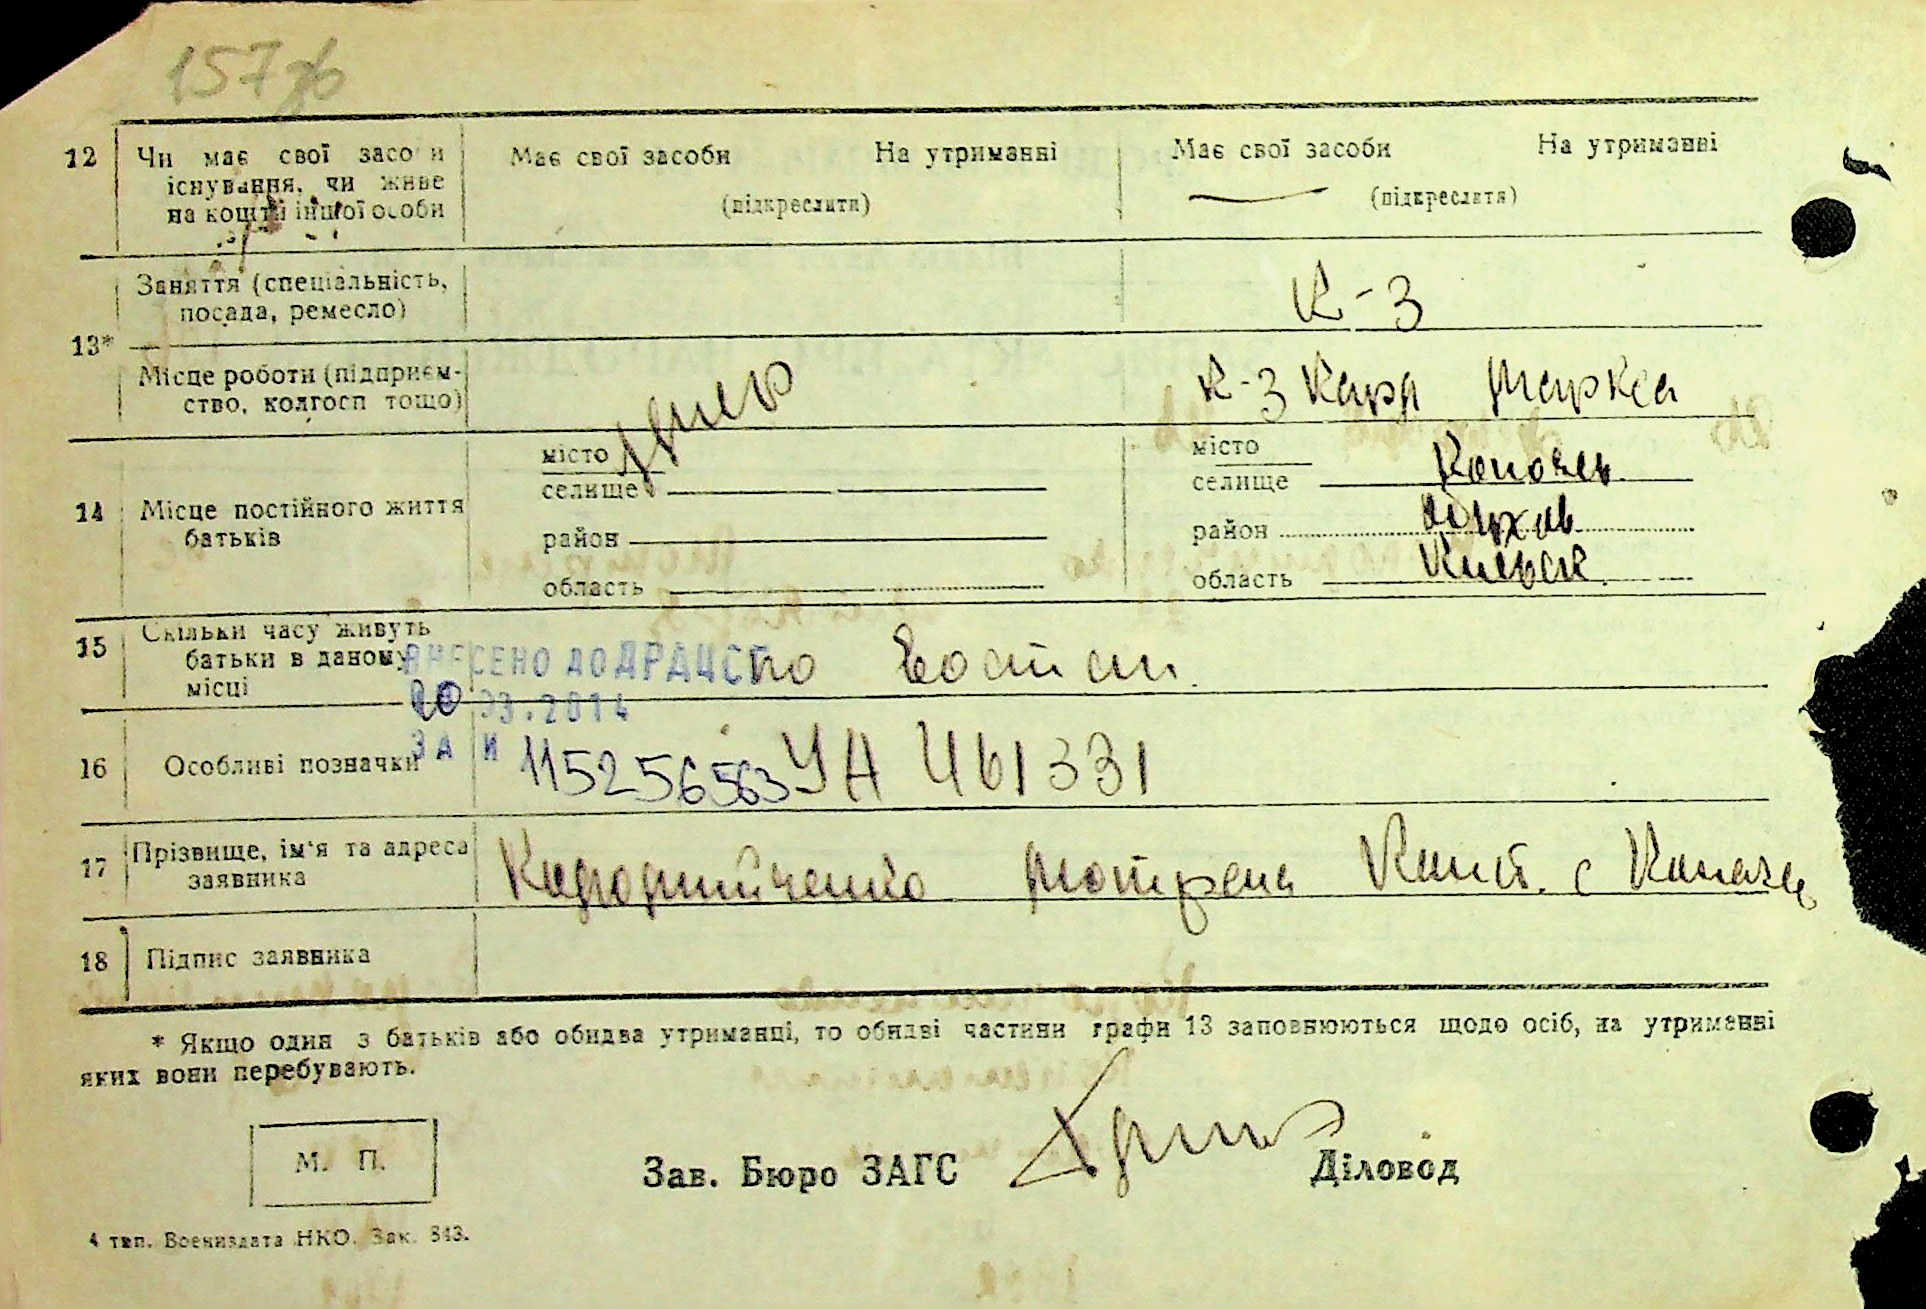 157зв
12 Чи має свої засоби Має свої засоби На утриманні Має свої засоби На утриманні
існування, чи живе
на кошти іншої особи (підкреслити) (підкреслити)
Заняття (спеціальність, К-З
посада, ремесло)
13*
Місце роботи (підприєм- К-З Карл Маркса
ство, колгосп тощо)
місто місто
селище селище
14 Місце постійного життя
батьків
район район
область область
15 Скільки часу живуть
батьки в даному
місці
ВНЕСЕНО ДО ДРАЦСГ
20 03.2014
16 Особливі позначки ЗА И 115256563 УА 461331
17 Прізвище, ім'я та адреса
заявника Мотрена Конст. с
18 Підпис заявника
* Якщо один з батьків або обидва утриманці, то обидві частини графи 13 заповнюються щодо осіб, на утриманні
яких вони перебувають.
М. П.
Зав. Бюро ЗАГС Діловод
4 тип. Воениздата НКО. Зак. 843.